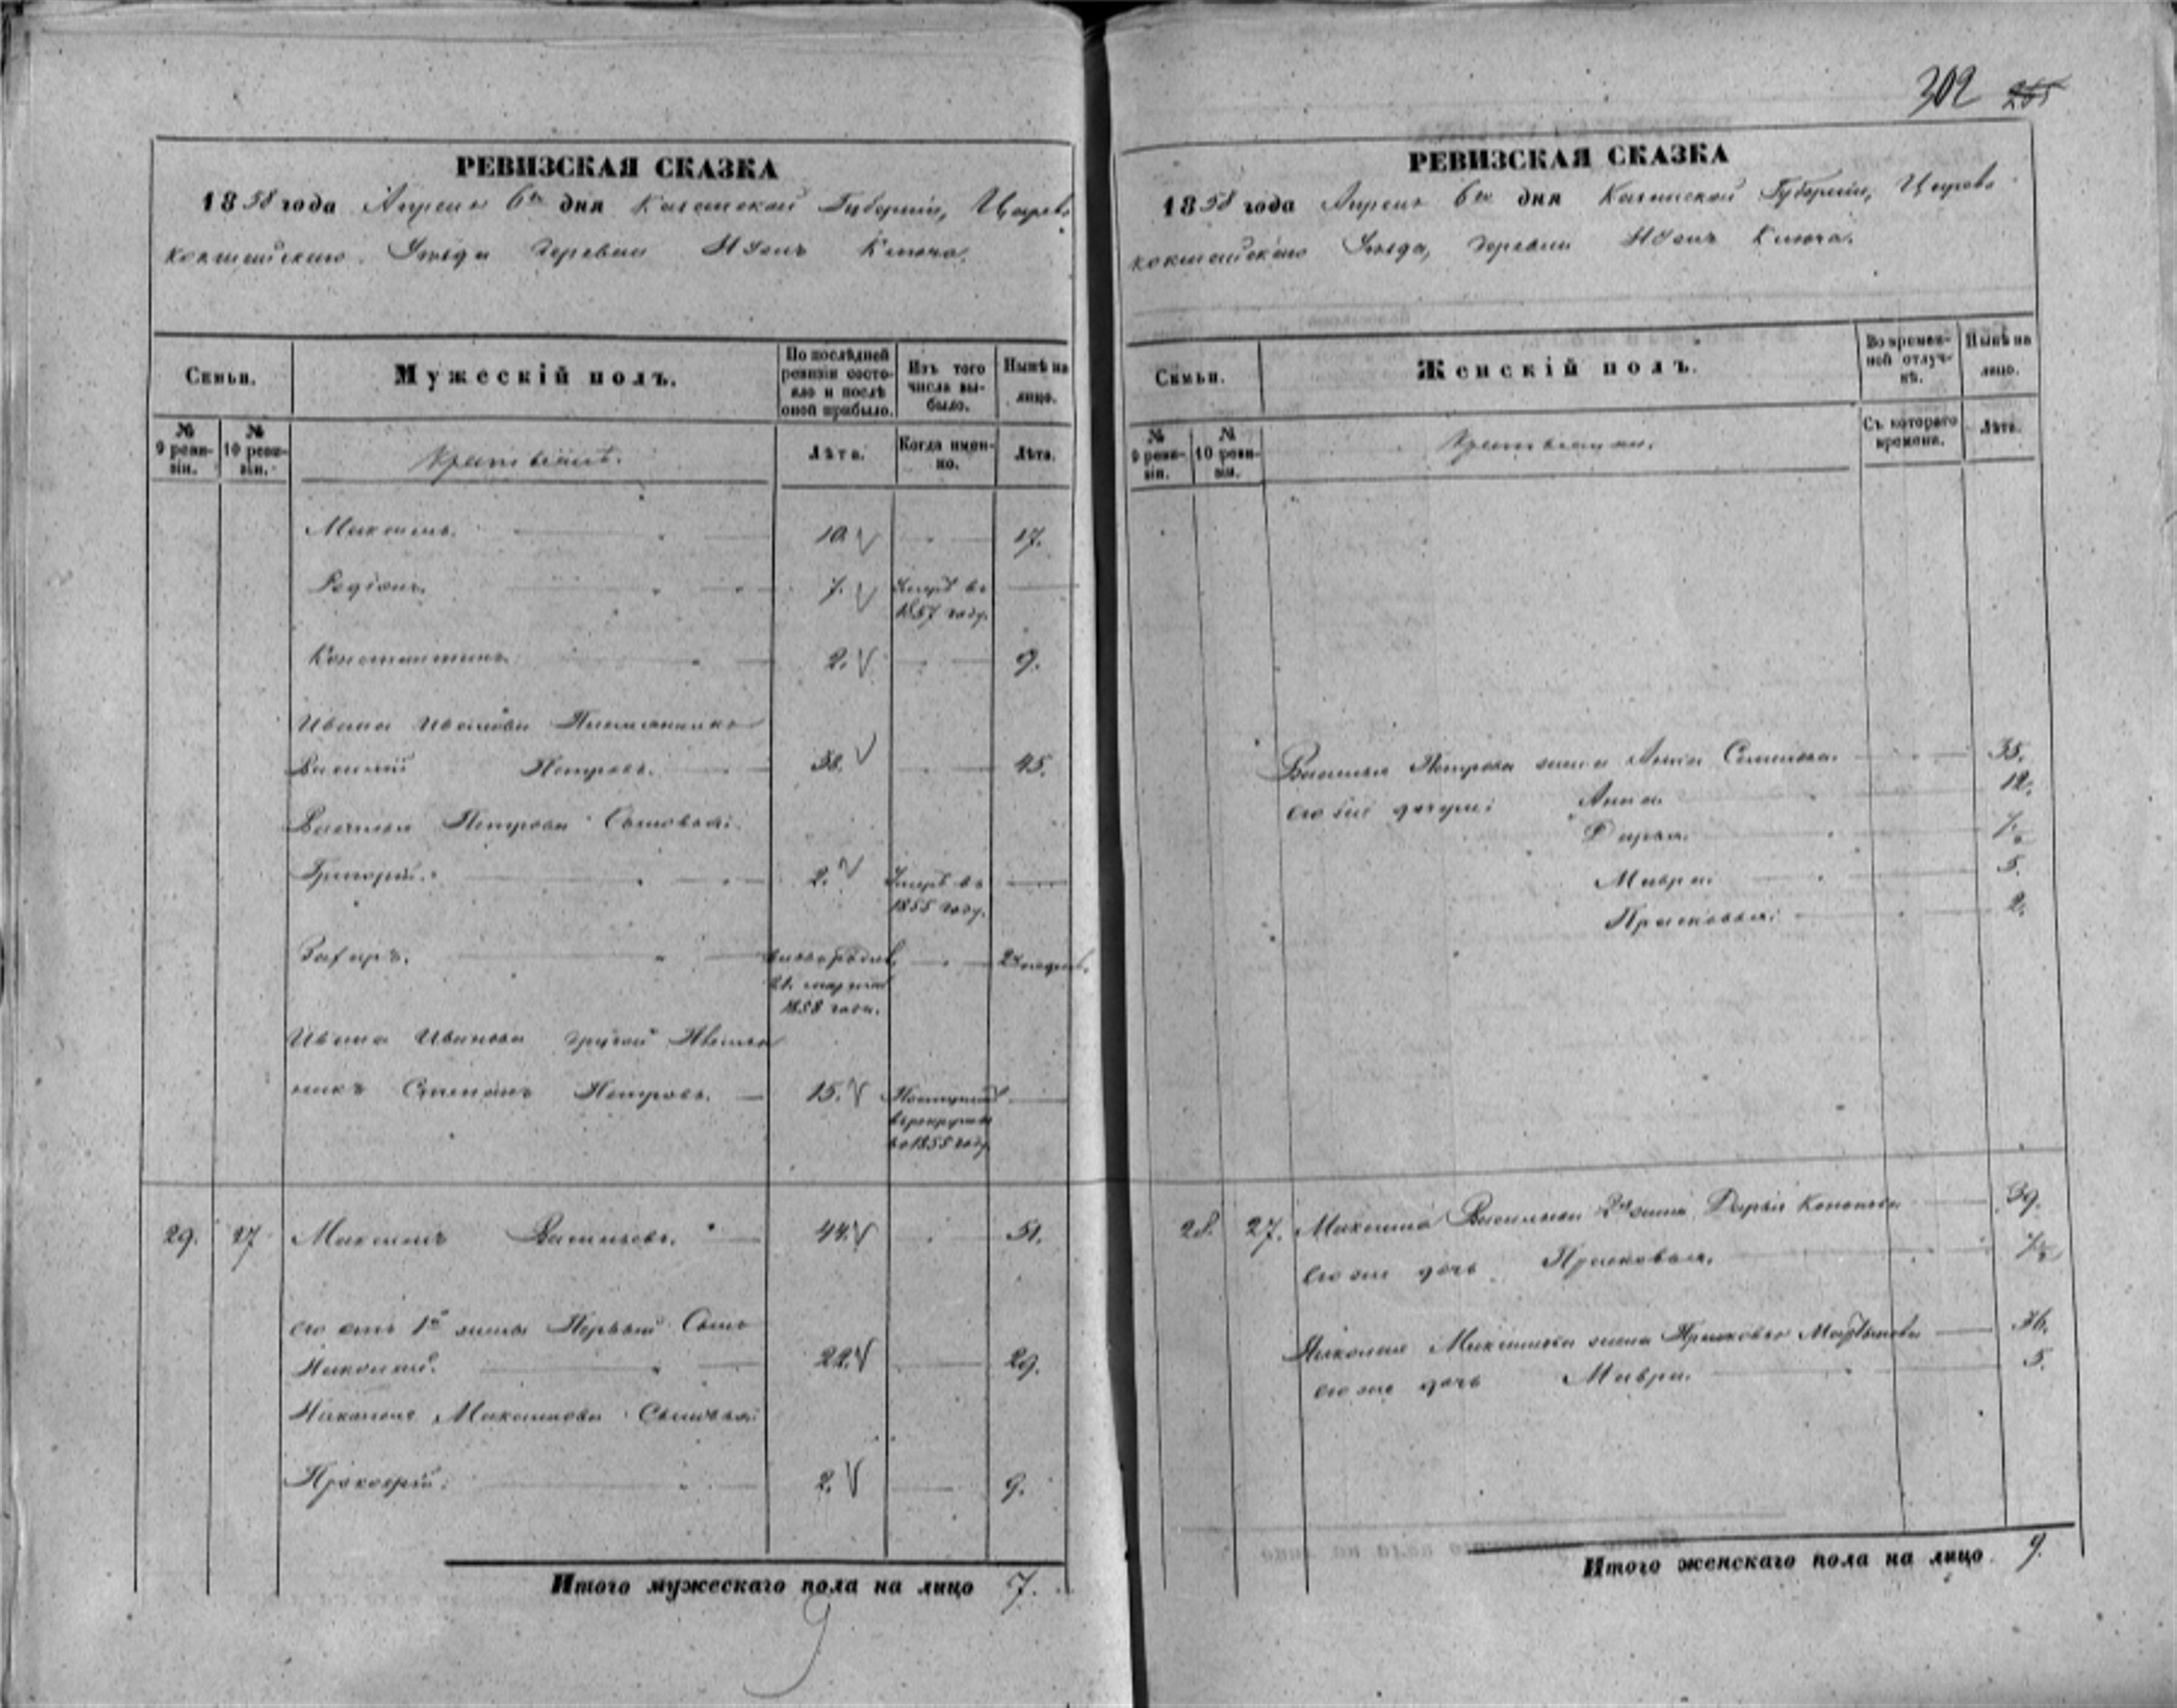 302 265
РЕВИЗСКАЯ СКАЗКА
1858 года Апреля 6го дня Казанской Губернии, Царево
кокшайскаго Уезда деревни Ключа.
Семьи.
Мужескій полъ.
По послѣдней ревизіи состояло и послѣ оной прибыло.
Изъ того числа выбыло.
Нынѣ на лицо.
№ 9 ревизіи.
№ 10 ревизіи.
Лѣта.
Когда именно.
Лѣта.
Максимъ. 10. 17.
Родіонъ. 7. Умеръ въ
1857 году.
Константинъ 2. 9.
Ивана Иванова Племянникъ
Василій Петровъ. 38. 45.
Василья Петрова Сыновья:
Григорій. 2. Умеръ въ
1855 году.
Захаръ.
21. марта
1858 года.
Ивана Иванова другой Племян
никъ Степанъ Петровъ. 15. Поступилъ
в рекруты
в 1855 году
29. 27 Максимъ Васильевъ. 44. 51.
его отъ 1й жены Первый Сынъ
Николай. 22. 29.
Николая Максимова Сыновья
Прокофій. 2. 9.
Итого мужескаго пола на лицо 7.
9
РЕВИЗСКАЯ СКАЗКА
1858 года Апреля 6го дня Казанской Губерніи, Царево
кокшайскаго Уезда, деревни Ключа.
Семьи.
Женскій полъ.
Во временной отлучкѣ.
Нынѣ на лицо.
№ 9 ревизіи.
№ 10 ревизіи.
Съ котораго времени.
Лѣта.
Василья Петрова жена Анна Семенова 35.
его же дочери: Анна 12.
Дарья. 7.
Мавра 5.
Прасковья: 2.
28. 27. Максима Васильева 2я жена Дарья 39.
Его же дочь Прасковья.
Николая Максимова жена Прасковья 36.
его же дочь Мавра. 5.
Итого женскаго пола на лицо 9.